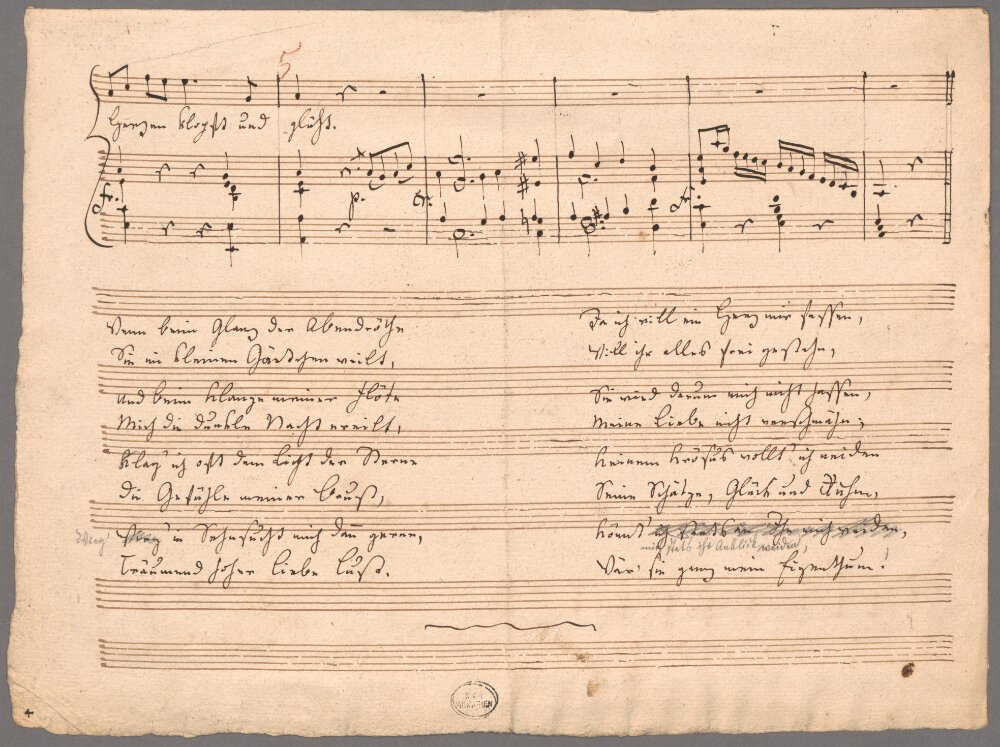 5
Herzen klopft und glüht.
fr. p. cr. fr.
Wenn beim Glanz der Abendröthe
Sie im kleinen Gärtchen weilt,
und beim Klange meiner Flöte
Mich die dunkle Nacht ereilt,
Klag' ich oft dem Licht der Sterne
die Gefühle meiner Brust,
in Sehnsucht mich dann gerne,
Träumend hoher Liebe Lust.
Ja ich will ein Herz mir fassen,
Will ihr alles frei gestehn,
Sie wird darum mich nicht hassen,
Meine Liebe nicht verschmähn;
Keinem Krösus wollt' ich neiden
Seine Schätze, Glück und Ruhm,
Könnt' ich stets an Ihr mich weiden,
mich stets ihr Anblick weiden,
Wär' sie ganz mein Eigenthum!